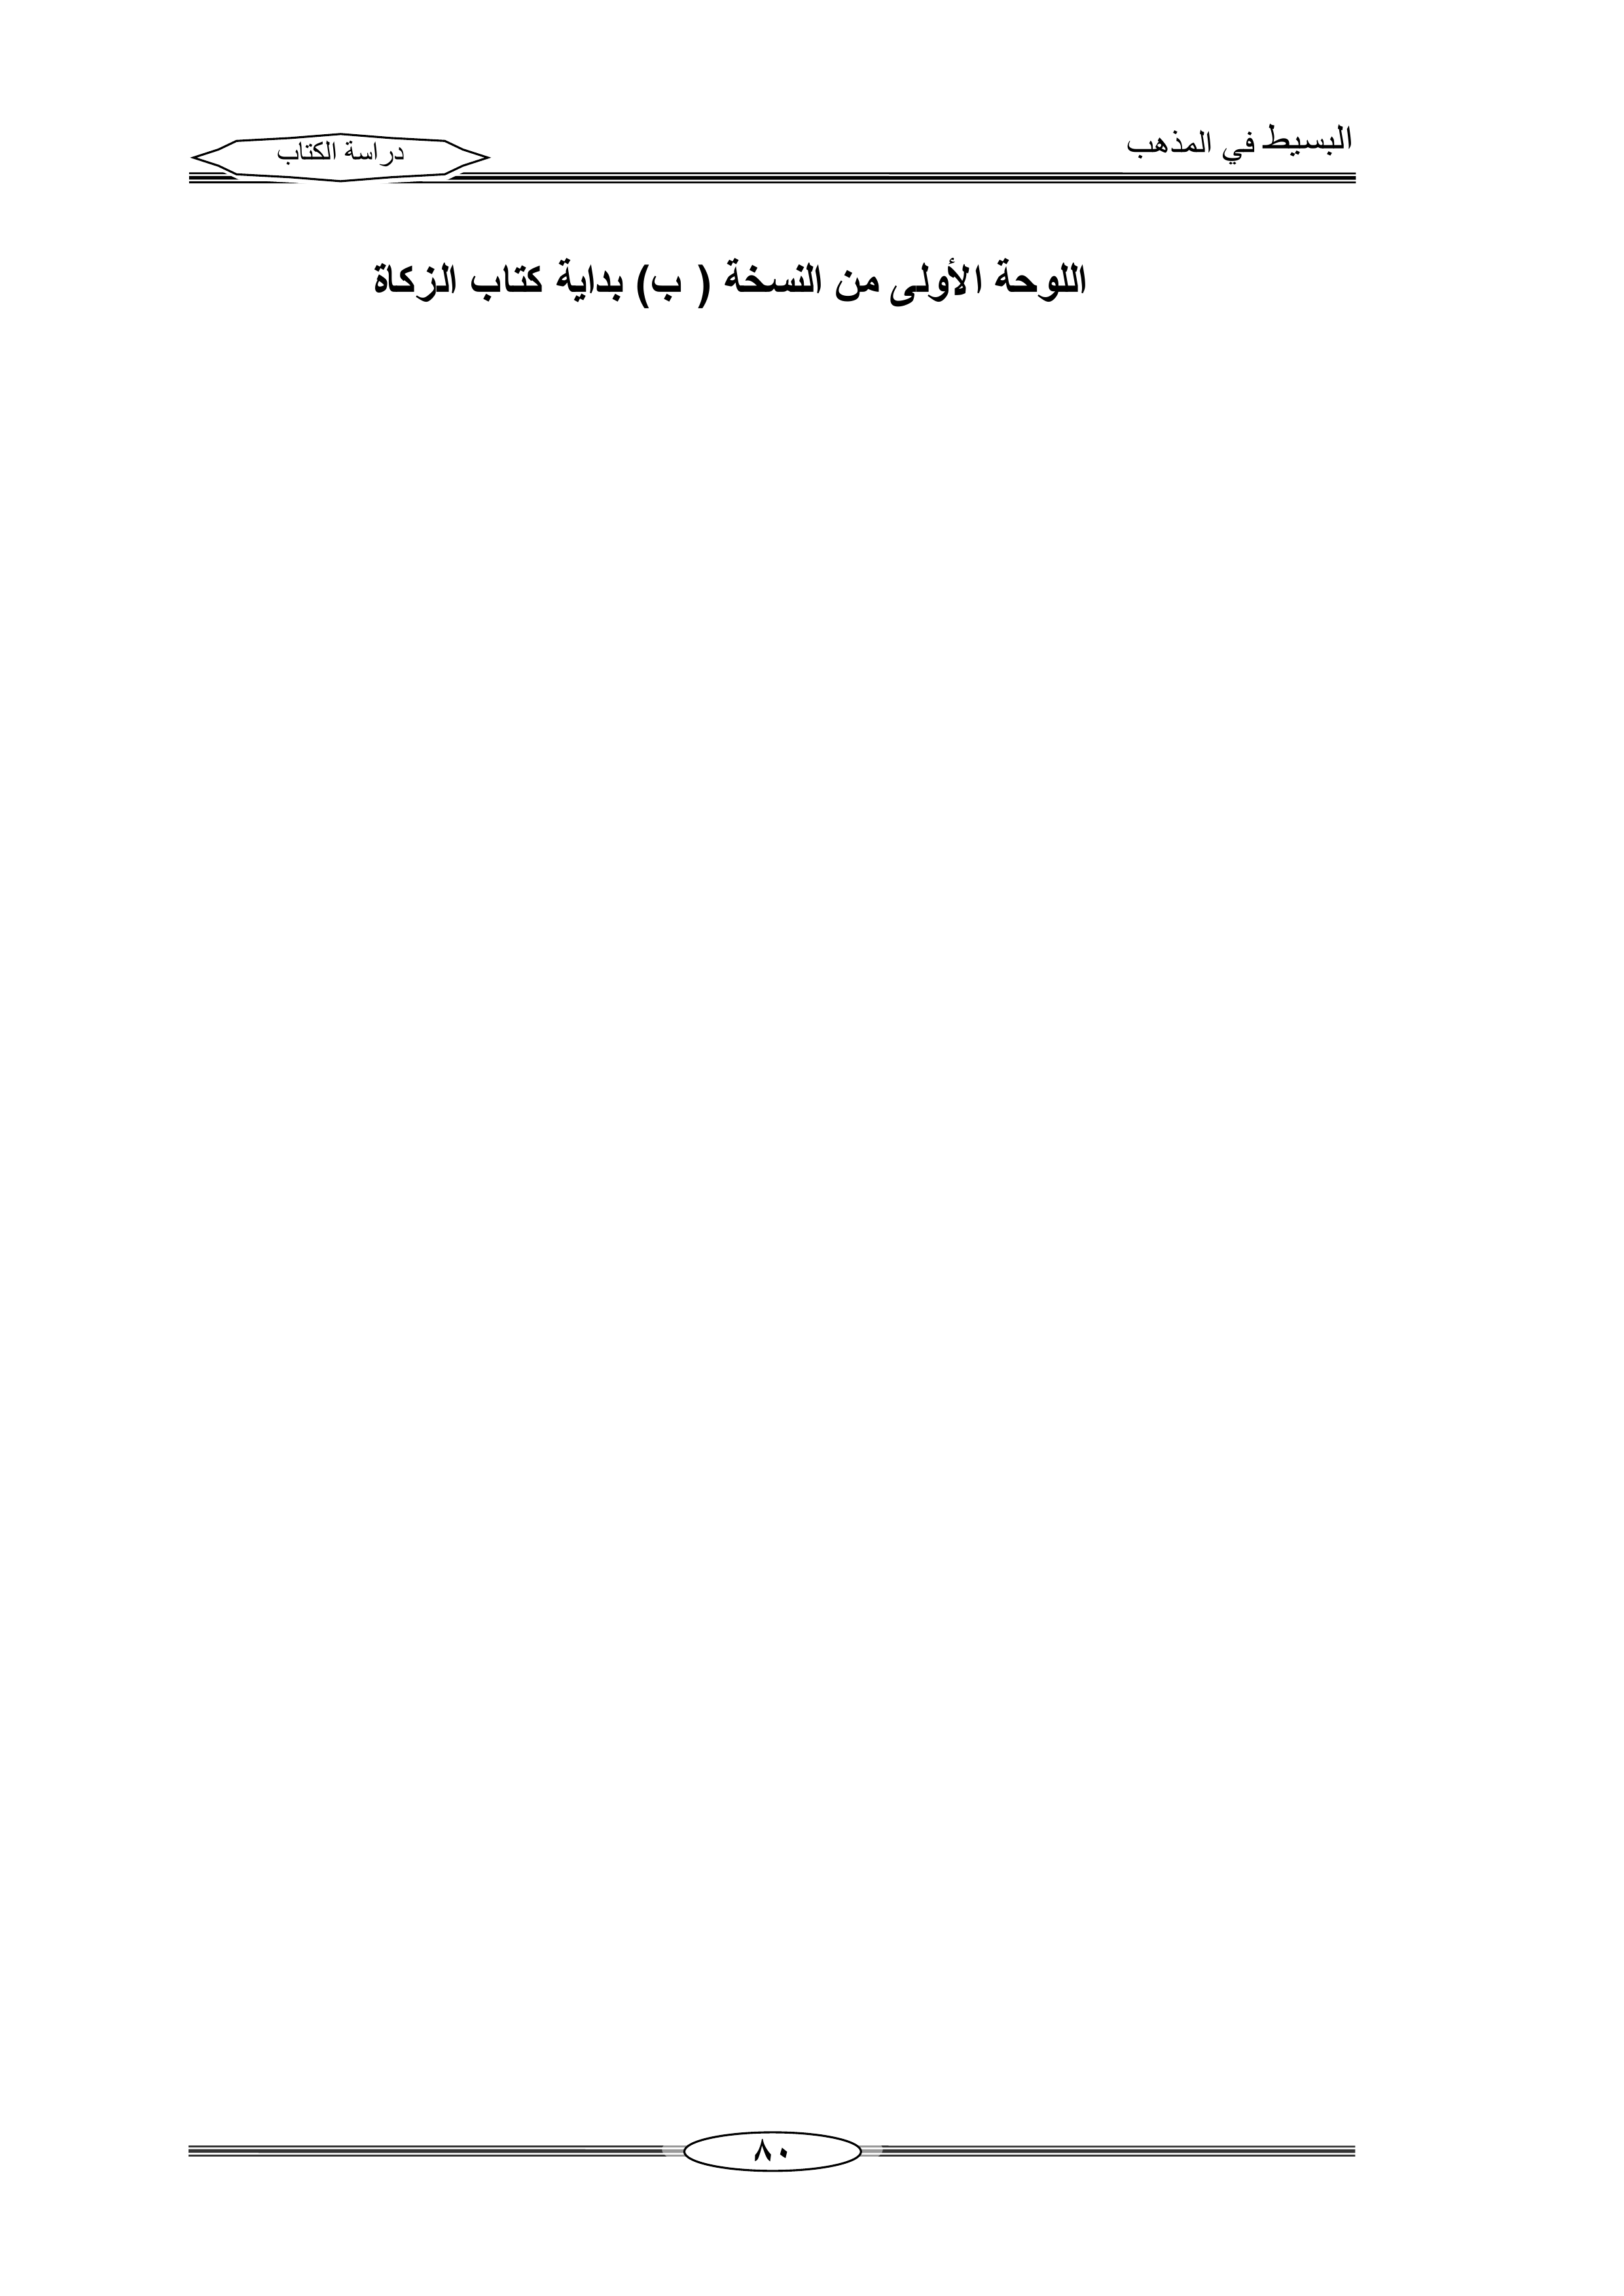 البسيط في المذهب
دراسة الكتاب
اللوحة الأولى من النسخة ( ب) بداية كتاب الزكاة
٨٠